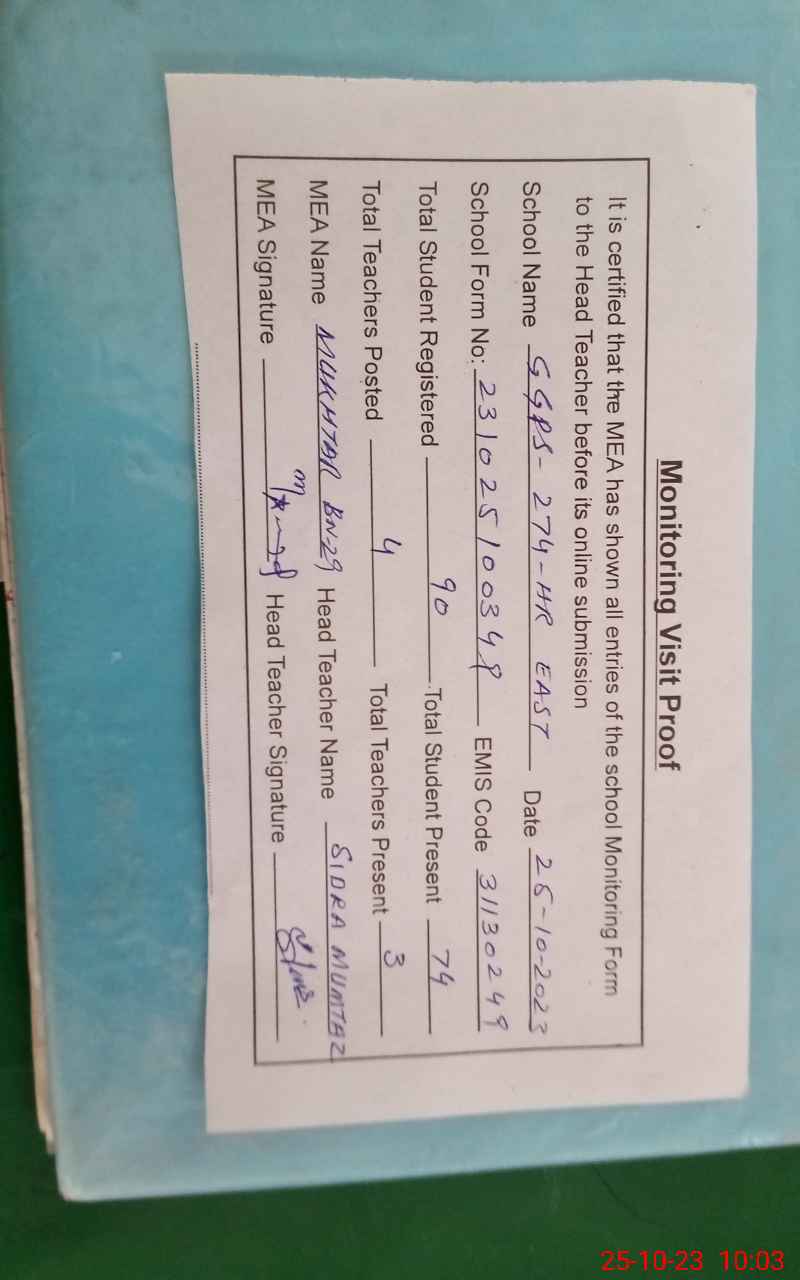 Monitoring Visit Proof
It is certified that the MEA has shown all entries of the school Monitoring Form
to the Head Teacher before its online submission
School Name GGPS-274-HR EAST Date 25-10-2023
School Form No: 23102510034 EMIS Code 3113024
Total Student Registered 90 Total Student Present 74
Total Teachers Posted 4 Total Teachers Present 3
MEA Name MUKHTAR BN-29 Head Teacher Name SIDRA MUMTAZ
MEA Signature Head Teacher Signature
25-10-23 10:03